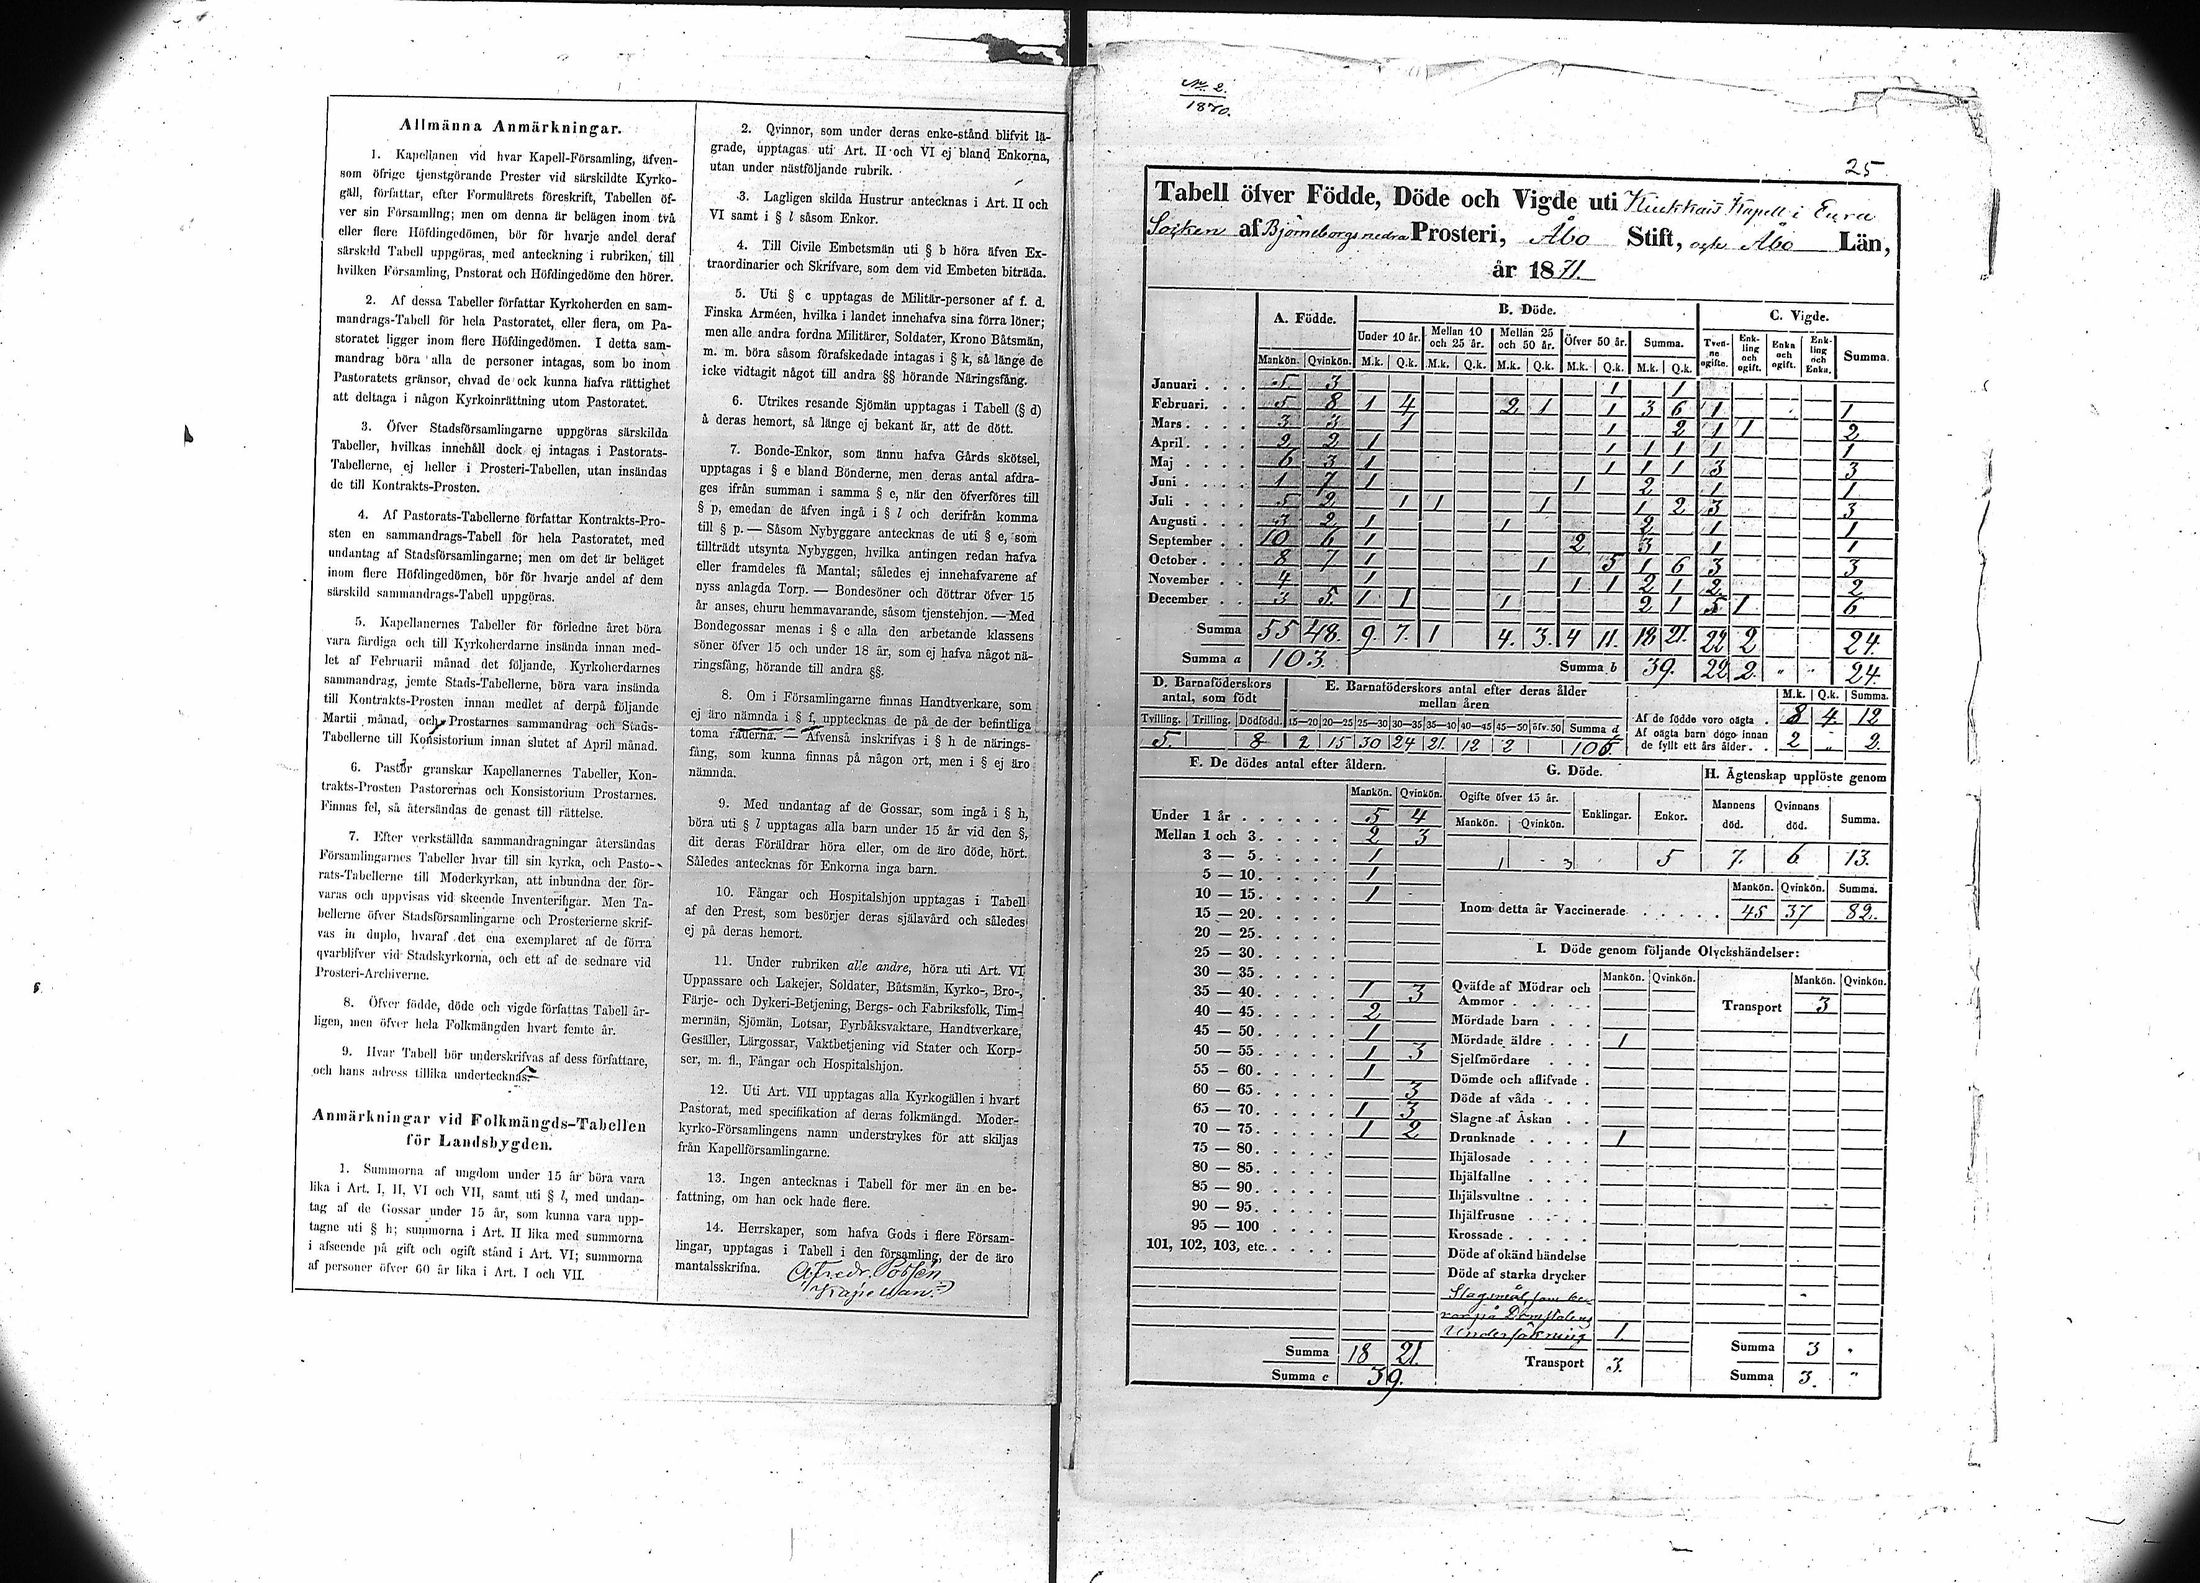 Allmänna Anmärkningar.
1. Kapellanen vid hvar Kapell-Församling, äfven-
som öfrige tjenstgörande Prester vid särskildte Kyrko-
gäll, författar, efter Formulärets föreskrift, Tabellen öf-
ver sin Församling; men om denna är belägen inom två
eller flere Höfdingedömen, bör för hvarje andel deraf
särskild Tabell uppgöras, med anteckning i rubriken, till
hvilken Församling, Pastorat och Höfdingedöme den hörer.
2. Af dessa Tabeller författar Kyrkoherden en sam-
mandrags-Tabell för hela Pastoratet, eller flera, om Pa-
storatet ligger inom flere Höfdingedömen. I detta sam-
mandrag böra alla de personer intagas, som bo inom
Pastoratets gränsor, ehvad de ock kunna hafva rättighet
att deltaga i någon Kyrkoinrättning utom Pastoratet.
3. Öfver Stadsförsamlingarne uppgöras särskilda
Tabeller, hvilkas innehåll dock ej intagas i Pastorats-
Tabellerne, ej heller i Prosteri-Tabellen, utan insändas
de till Kontrakts-Prosten.
4. Af Pastorats-Tabellerne författar Kontrakts-Pro-
sten en sammandrags-Tabell för hela Pastoratet, med
undantag af Stadsförsamlingarne; men om det är beläget
inom flere Höfdingedömen, bör för hvarje andel af dem
särskild sammandrags-Tabell uppgöras.
5. Kapellanernes Tabeller för förledne året böra
vara färdiga och till Kyrkoherdarne insända innan med-
let af Februarii månad det följande, Kyrkoherdarnes
sammandrag, jemte Stads-Tabellerne, böra vara insända
till Kontrakts-Prosten innan medlet af derpå följande
Martii månad, och Prostarnes sammandrag och Stads-
Tabellerne till Konsistorium innan slutet af April månad.
6. Pastor granskar Kapellanernes Tabeller, Kon-
trakts-Prosten Pastorernas och Konsistorium Prostarnes.
Finnas fel, så återsändas de genast till rättelse.
7. Efter verkställda sammandragningar återsändas
Församlingarnes Tabeller hvar till sin kyrka, och Pasto-
rats-Tabellerne till Moderkyrkan, att inbundna der för-
varas och uppvisas vid skeende Inventeringar. Men Ta-
bellerne öfver Stadsförsamlingarne och Prosterierne skrif-
vas in duplo, hvaraf det ena exemplaret af de förra
qvarblifver vid Stadskyrkorna, och ett af de sednare vid
Prosteri-Archiverne.
8. Öfver födde, döde och vigde författas Tabell år-
ligen, men öfver hela Folkmängden hvart femte år.
9. Hvar Tabell bör underskrifvas af dess författare,
och hans adress tillika undertecknas.
Anmärkningar vid Folkmängds-Tabellen
för Landsbygden.
1. Summorna af ungdom under 15 år böra vara
lika i Art. I, II, VI och VII, samt uti § l, med undan-
tag af de Gossar under 15 år, som kunna vara upp-
tagne uti § h; summorna i Art. II lika med summorna
i afseende på gift och ogift stånd i Art. VI; summorna
af personer öfver 60 år lika i Art. I och VII.
2. Qvinnor, som under deras enke-stånd blifvit lä-
grade, upptagas uti Art. II och VI ej bland Enkorna,
utan under nästföljande rubrik.
3. Lagligen skilda Hustrur antecknas i Art. II och
VI samt i § l såsom Enkor.
4. Till Civile Embetsmän uti § b höra äfven Ex-
traordinarier och Skrifvare, som dem vid Embeten biträda.
5. Uti § c upptagas de Militär-personer af f. d.
Finska Arméen, hvilka i landet innehafva sina förra löner;
men alle andra fordna Militärer, Soldater, Krono Båtsmän,
m. m. böra såsom förafskedade intagas i § k, så länge de
icke vidtagit något till andra §§ hörande Näringsfång.
6. Utrikes resande Sjömän upptagas i Tabell (§ d)
å deras hemort, så länge ej bekant är, att de dött.
7. Bonde-Enkor, som ännu hafva Gårds skötsel,
upptagas i § e bland Bönderne, men deras antal afdra-
ges ifrån summan i samma § e, när den öfverföres till
§ p, emedan de äfven ingå i § l och derifrån komma
till § p. — Såsom Nybyggare antecknas de uti § e, som
tillträdt utsynta Nybyggen, hvilka antingen redan hafva
eller framdeles få Mantal; således ej innehafvarene af
nyss anlagda Torp. — Bondesöner och döttrar öfver 15
år anses, ehuru hemmavarande, såsom tjenstehjon. — Med
Bondegossar menas i § e alla den arbetande klassens
söner öfver 15 och under 18 år, som ej hafva något nä-
ringsfång, hörande till andra §§.
8. Om i Församlingarne finnas Handtverkare, som
ej äro nämnda i § f, upptecknas de på de der befintliga
toma raderna. — Äfvenså inskrifvas i § h de närings-
fång, som kunna finnas på någon ort, men i § ej äro
nämnda.
9. Med undantag af de Gossar, som ingå i § h,
böra uti § l upptagas alla barn under 15 år vid den §,
dit deras Föräldrar höra eller, om de äro döde, hört.
Således antecknas för Enkorna inga barn.
10. Fångar och Hospitalshjon upptagas i Tabell
af den Prest, som besörjer deras själavård och således
ej på deras hemort.
11. Under rubriken alle andre, höra uti Art. VI
Uppassare och Lakejer, Soldater, Båtsmän, Kyrko-, Bro-,
Färje- och Dykeri-Betjening, Bergs- och Fabriksfolk, Tim-
mermän, Sjömän, Lotsar, Fyrbåksvaktare, Handtverkare,
Gesäller, Lärgossar, Vaktbetjening vid Stater och Korp-
ser, m. fl., Fångar och Hospitalshjon.
12. Uti Art. VII upptagas alla Kyrkogällen i hvart
Pastorat, med specifikation af deras folkmängd. Moder-
kyrko-Församlingens namn understrykes för att skiljas
från Kapellförsamlingarne.
13. Ingen antecknas i Tabell för mer än en be-
fattning, om han ock hade flere.
14. Herrskaper, som hafva Gods i flere Försam-
lingar, upptagas i Tabell i den församling, der de äro
mantalsskrifna.
Alfredr.
Kapellan.
No. 2.
1870.
25
Tabell öfver Födde, Döde och Vigde uti Kiukkais Kapell i Eura
Socken af Björneborgs nedra Prosteri, Åbo Stift, och Åbo Län,
år 1871.
A. Födde. B. Döde. C. Vigde.
Under 10 år. Mellan 10 och 25 år. Mellan 25 och 50 år. Öfver 50 år. Summa. Tvenne ogifte. Enkling och ogift. Enka och ogift. Enkling och Enka. Summa.
Mankön. Qvinkön. M.k. Q.k. M.k. Q.k. M.k. Q.k. M.k. Q.k. M.k. Q.k.
Januari 5 3 1 1
Februari 5 8 1 4 2 1 1 3 6 1 1
Mars 3 3 1 1 2 1 1 2
April 2 2 1 1 1 1 1 1
Maj 6 3 1 1 1 1 3 3
Juni 1 7 1 1 2 1 1
Juli 5 2 1 1 1 1 2 3 3
Augusti 3 2 1 1 2 1 1
September 10 6 1 2 3 1 1
October 8 7 1 1 5 1 6 3 3
November 4 1 1 1 2 1 2 2
December 3 5 1 1 1 2 1 5 1 6
Summa 55 48. 9. 7. 1 4. 3. 4 11. 18. 21. 22 2 24.
Summa a 103. Summa b 39. 22 2. " " 24.
D. Barnaföderskors antal, som födt
E. Barnaföderskors antal efter deras ålder mellan åren
M.k. Q.k. Summa.
Tvilling. Trilling. Dödfödd. 15—20 20—25 25—30 30—35 35—40 40—45 45—50 öfv. 50 Summa d
5. 8 2 15 30 24 21. 12 2
Af de födde voro oägta 8 4 12
Af oägta barn dögo innan
de fyllt ett års ålder 2 " 2.
F. De dödes antal efter åldern.
Mankön. Qvinkön.
Under 1 år 5 4
Mellan 1 och 3 2 3
3 — 5 1
5 — 10 1
10 — 15 1
15 — 20
20 — 25
25 — 30
30 — 35
35 — 40 1 3
40 — 45 2
45 — 50 1
50 — 55 1 3
55 — 60 1
60 — 65 3
65 — 70 1 3
70 — 75 1 2
75 — 80
80 — 85
85 — 90
90 — 95
95 — 100
101, 102, 103, etc.
Summa 18 21.
Summa c 39.
G. Döde.
Ogifte öfver 15 år. Enklingar. Enkor.
Mankön. Qvinkön.
1 3 5
H. Ägtenskap upplöste genom
Mannens död. Qvinnans död. Summa.
7. 6. 13.
Mankön. Qvinkön. Summa.
Inom detta år Vaccinerade 45 37 82.
I. Döde genom följande Olyckshändelser:
Mankön. Qvinkön. Mankön. Qvinkön.
Qväfde af Mödrar och
Ammor
Transport 3
Mördade barn
Mördade äldre 1
Sjelfmördare
Dömde och aflifvade
Döde af våda
Slagne af Åskan
Drunknade 1
Ihjälosade
Ihjälfallne
Ihjälsvultne
Ihjälfrusne
Krossade
Döde af okänd händelse
Döde af starka drycker
Slagsmål, som be-
ror på Domstolens
Undersökning 1.
Transport 3.
Summa 3 "
Summa 3. "